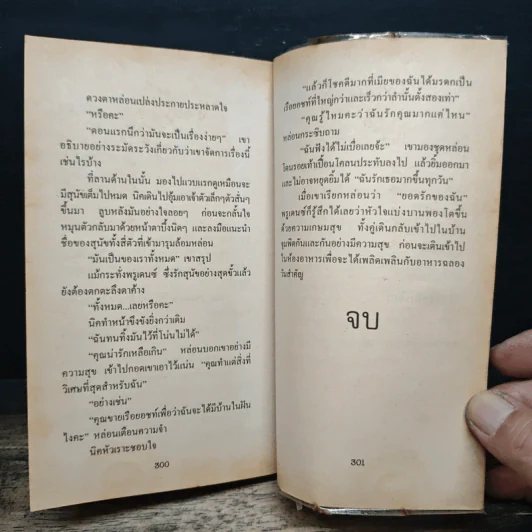 ดวงตาหล่อนเปล่งประกายประหลาดใจ
“หรือคะ”
“ตอนแรกนึกว่ามันจะเป็นเรื่องง่ายๆ” เขา
อธิบายอย่างระมัดระวังเกี่ยวกับว่าเขาจัดการเรื่องนี้
เช่นไรบ้าง
ที่ลานด้านในนั้น มองไปแวบแรกดูเหมือนจะ
มีสุนัขเต็มไปหมด นิคเดินไปอุ้มเอาเจ้าตัวเล็กๆตัวสั้นๆ
ขึ้นมา ลูบหลังมันอย่างใจลอยๆ ก่อนจะกลั้นใจ
หมุนตัวกลับมาด้วยหน้าตาบึ้งนิดๆ และลงมือแนะนำ
ชื่อของสุนัขทั้งสี่ตัวที่เข้ามารุมล้อมหล่อน
“มันเป็นของเราทั้งหมด” เขาสรุป
แม้กระทั่งพรูเดนซ์ ซึ่งรักสุนัขอย่างสุดขั้วแล้ว
ยังต้องตกตะลึงตาค้าง
“ทั้งหมด...เลยหรือคะ”
นิคทำหน้าขึงขังยิ่งกว่าเดิม
“ฉันทนทิ้งมันไว้ที่โน่นไม่ได้”
“คุณน่ารักเหลือเกิน” หล่อนบอกเขาอย่างมี
ความสุข เข้าไปกอดเขาเอาไว้แน่น “คุณทำแต่สิ่งที่
วิเศษที่สุดสำหรับฉัน”
“อย่างเช่น”
“คุณขายเรือยอชท์เพื่อว่าฉันจะได้มีบ้านในฝัน
ไงคะ” หล่อนเตือนความจำ
นิคหัวเราะชอบใจ
300
“แล้วก็โชคดีมากที่เมียของฉันได้มรดกเป็น
เรือยอชท์ที่ใหญ่กว่าและเร็วกว่าลำนั้นตั้งสองเท่า”
“คุณรู้ไหมคะว่าฉันรักคุณมากแค่ไหน”
หล่อนกระซิบถาม
“ฉันฟังได้ไม่เบื่อเลยจ้ะ” เขามองชุดหล่อน
โดนรอยเท้าเปื้อนโคลนประทับลงไป แล้วยิ้มออกมา
และไม่อาจหยุดยิ้มได้ “ฉันรักเธอมากขึ้นทุกวัน”
เมื่อเขาเรียกหล่อนว่า “ยอดรักของฉัน”
พรูเดนซ์ก็รู้สึกได้เลยว่าหัวใจเบ่งบานพองโตขึ้น
ด้วยความเกษมสุข ทั้งคู่เดินกลับเข้าไปในบ้าน
จุมพิตกันและกันอย่างมีความสุข ก่อนจะเดินเข้าไป
ในห้องอาหารเพื่อจะได้เพลิดเพลินกับอาหารฉลอง
วันสำคัญ
จบ
301